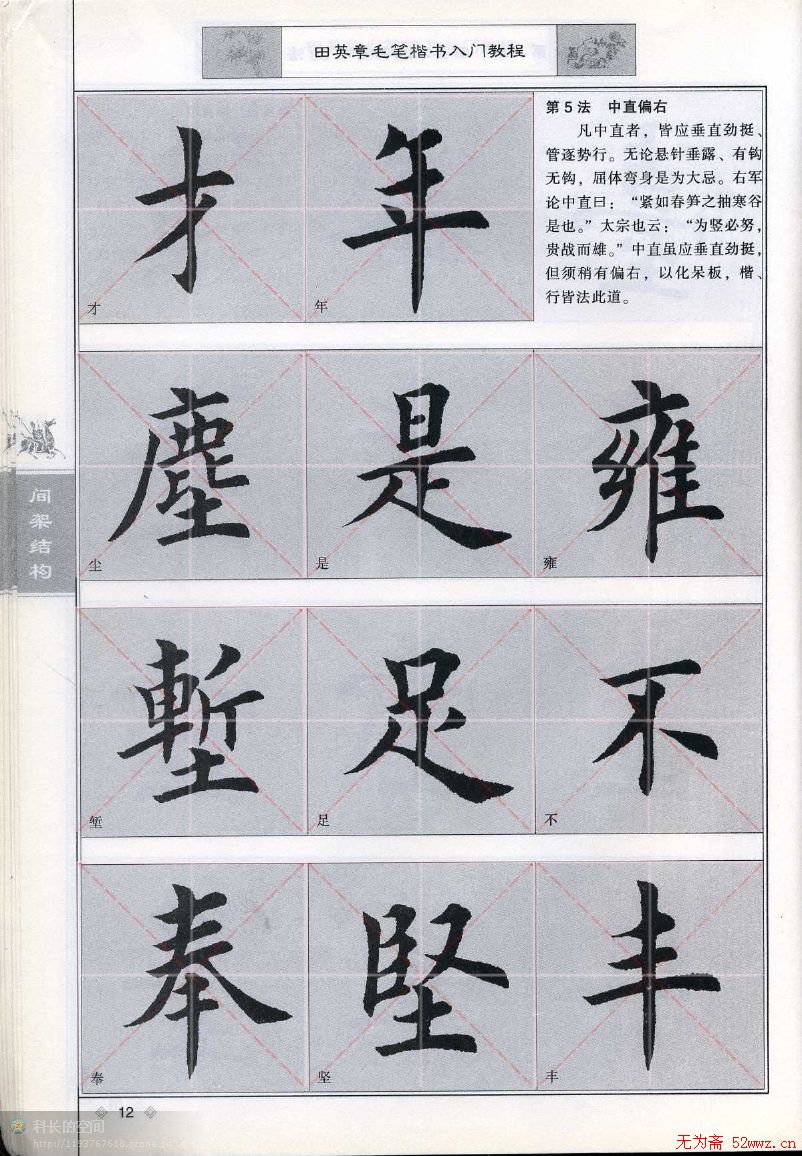 田英章毛笔楷书入门教程
第5法 中直偏右
凡中直者，皆应垂直劲挺、
管逐势行。无论悬针垂露、有钩
无钩，屈体弯身是为大忌。右军
论中直曰：“紧如春笋之抽寒谷
是也。”太宗也云：“为竖必努，
贵战而雄。”中直虽应垂直劲挺，
但须稍有偏右，以化呆板，楷、
行皆法此道。
才 年
才 年
塵 是 雍
尘 是 雍
间架结构
塹 足 不
堑 足 不
奉 堅 丰
奉 坚 丰
12
科长的空间
http://1193767618.qzone.qq.com
无为斋 52wwz.cn